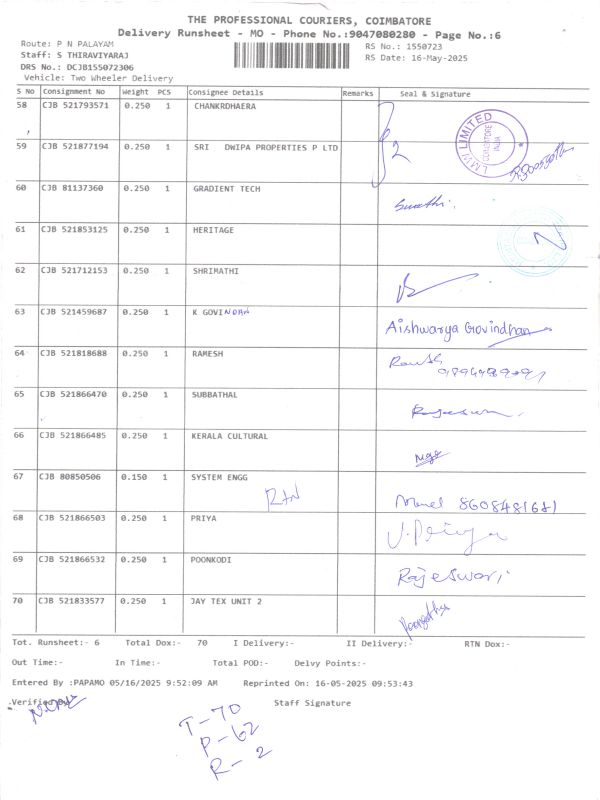 THE PROFESSIONAL COURIERS, COIMBATORE
Delivery Runsheet - MO - Phone No.:9047080280 - Page No.:6
Route: P N PALAYAM RS No.: 1550723
Staff: S THIRAVIYARAJ RS Date: 16-May-2025
DRS No.: DCJB155072306
Vehicle: Two Wheeler Delivery
S No Consignment No Weight PCS Consignee Details Remarks Seal & Signature
58 CJB 521793571 0.250 1 CHANKRDHAERA
LMW LIMITED COIMBATORE INDIA
59 CJB 521877194 0.250 1 SRI DWIPA PROPERTIES P LTD
60 CJB 81137360 0.250 1 GRADIENT TECH Sumathi.
61 CJB 521853125 0.250 1 HERITAGE
62 CJB 521712153 0.250 1 SHRIMATHI
63 CJB 521459687 0.250 1 K GOVINDAN Aishwarya Govindhan
64 CJB 521818688 0.250 1 RAMESH
65 CJB 521866470 0.250 1 SUBBATHAL
66 CJB 521866485 0.250 1 KERALA CULTURAL
67 CJB 80850506 0.150 1 SYSTEM ENGG
RTN
68 CJB 521866503 0.250 1 PRIYA J. Priya
69 CJB 521866532 0.250 1 POONKODI Rajeswari
70 CJB 521833577 0.250 1 JAY TEX UNIT 2
Tot. Runsheet:- 6 Total Dox:- 70 I Delivery:- II Delivery:- RTN Dox:-
Out Time:- In Time:- Total POD:- Delvy Points:-
Entered By :PAPAMO 05/16/2025 9:52:09 AM Reprinted On: 16-05-2025 09:53:43
Verified By Staff Signature
T-70
P-62
R-2